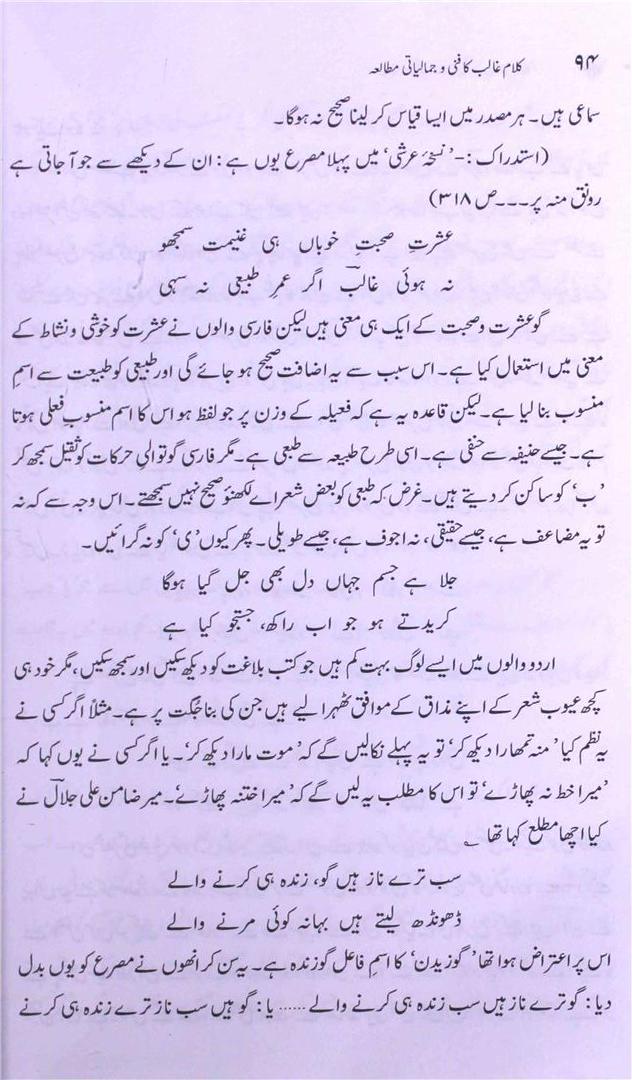 ۹۴ کلام غالب کا فنی و جمالیاتی مطالعہ
سماعی ہیں۔ ہر مصدر میں ایسا قیاس کر لینا صحیح نہ ہوگا۔
(استدراک :-’نسخۂ عرشی‘ میں پہلا مصرع یوں ہے : ان کے دیکھے سے جو آ جاتی ہے
رونق منہ پر۔۔۔ص ۳۱۸)
عشرتِ صحبتِ خوباں ہی غنیمت سمجھو
نہ ہوئی غالبؔ اگر عمرِ طبیعی نہ سہی
گو عشرت و صحبت کے ایک ہی معنی ہیں لیکن فارسی والوں نے عشرت کو خوشی و نشاط کے
معنی میں استعمال کیا ہے۔ اس سبب سے یہ اضافت صحیح ہو جائے گی اور طبیعی کو طبیعت سے اسمِ
منسوب بنا لیا ہے۔ لیکن قاعدہ یہ ہے کہ فعیلہ کے وزن پر جو لفظ ہو اس کا اسم منسوب فعلی ہوتا
ہے۔ جیسے حنیفہ سے حنفی ہے۔ اسی طرح طبیعہ سے طبعی ہے۔ مگر فارسی گو توالیِ حرکات کو ثقیل سمجھ کر
’ب‘ کو ساکن کر دیتے ہیں۔ غرض کہ طبعی کو بعض شعراے لکھنؤ صحیح نہیں سمجھتے۔ اس وجہ سے کہ نہ
تو یہ مضاعف ہے، جیسے حقیقی، نہ اجوف ہے، جیسے طویلی۔ پھر کیوں ’ی‘ کو نہ گرائیں۔
جلا ہے جسم جہاں دل بھی جل گیا ہوگا
کریدتے ہو جو اب راکھ، جستجو کیا ہے
اردو والوں میں ایسے لوگ بہت کم ہیں جو کتب بلاغت کو دیکھ سکیں اور سمجھ سکیں، مگر خود ہی
کچھ عیوب شعر کے اپنے مذاق کے موافق ٹھہرا لیے ہیں جن کی بنا جگت پر ہے۔ مثلاً اگر کسی نے
یہ نظم کیا ’منہ تمھارا دیکھ کر‘ تو یہ پہلے نکالیں گے کہ ’موت مارا دیکھ کر‘۔ یا اگر کسی نے یوں کہا کہ
’میرا خط نہ پھاڑے‘ تو اس کا مطلب یہ لیں گے کہ ’میرا ختنہ پھاڑے‘۔ میر ضامن علی جلالؔ نے
کیا اچھا مطلع کہا تھا ؎
سب ترے ناز ہیں گو، زندہ ہی کرنے والے
ڈھونڈھ لیتے ہیں بہانہ کوئی مرنے والے
اس پر اعتراض ہوا تھا ’گوزیدن‘ کا اسمِ فاعل گوزندہ ہے۔ یہ سن کر انھوں نے مصرع کو یوں بدل
دیا : گو ترے ناز ہیں سب زندہ ہی کرنے والے ...... یا : گو ہیں سب ناز ترے زندہ ہی کرنے